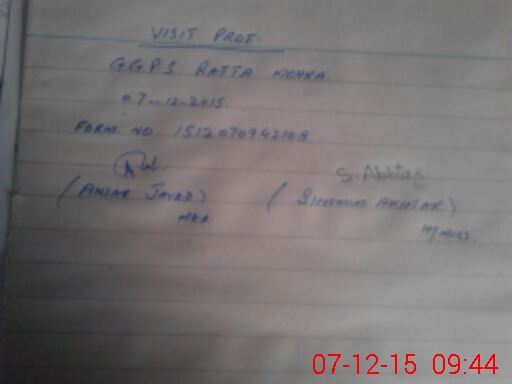 VISIT PROF.
G.G.P.S. RATTA MOHRA.
07-12-2015.
FORM. NO. 1512070942108.
S. Akhtar
JAVED)
MEA
AKHTAR)
07-12-15 09:44